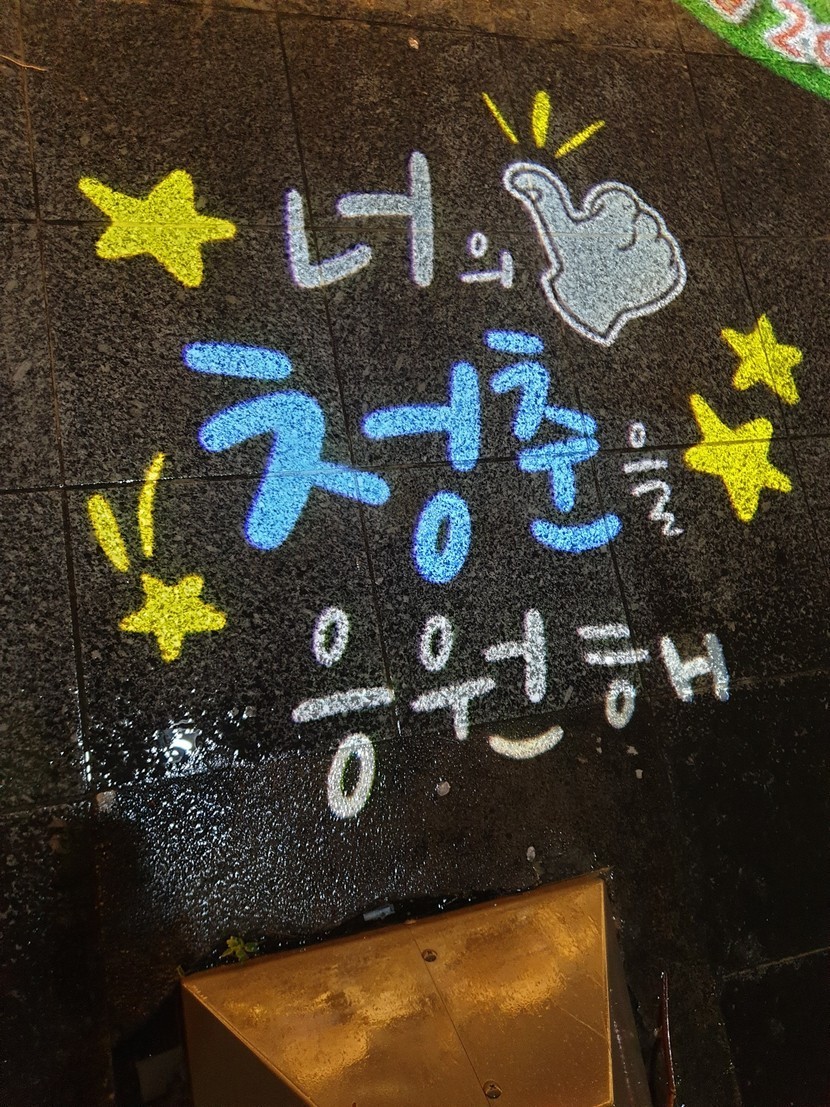 너의
청춘을
응원해